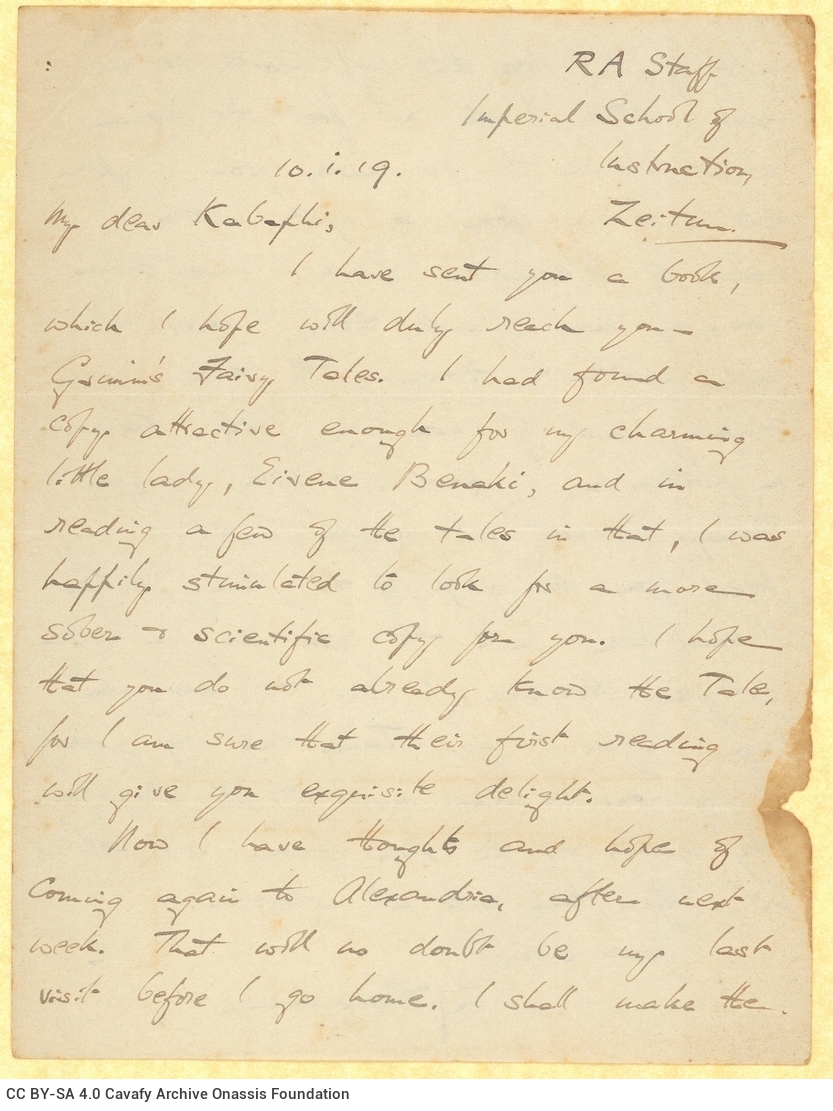 RA Staff
Imperial School of
10.i.19. Instruction,
My dear Kabaphi, Zeitun.
I have sent you a book,
which I hope will duly reach you –
Grimm's Fairy Tales. I had found a
copy attractive enough for my charming
little lady, Eirene Benaki, and in
reading a few of the tales in that, I was
happily stimulated to look for a more
sober & scientific copy for you. I hope
that you do not already know the Tales,
for I am sure that their first reading
will give you exquisite delight.
Now I have thoughts and hope of
coming again to Alexandria, after next
week. That will no doubt be my last
visit before I go home. I shall make the
CC BY-SA 4.0 Cavafy Archive Onassis Foundation